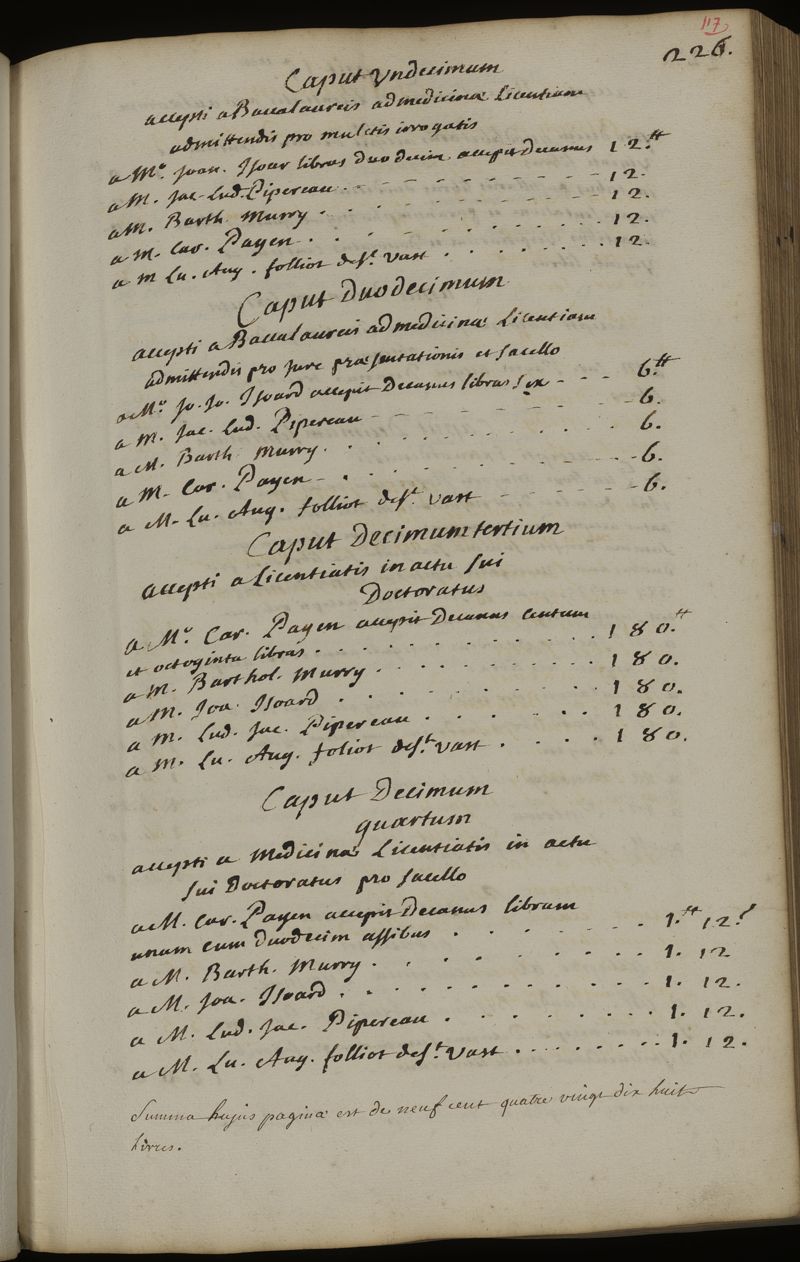 117
226.
Caput Undecimum
accepti a Baccalaureis ad medicinæ Licentiam
admittendis pro mulctis irrogatis
a Mo. Joan. Isoar libras duodecim accepit Decanus 12.tt
a M. Jac. Lud. Pipereau . . - - - - - - - - 12.
a M. Barth. Murry . . . - - - - - - - 12.
a M. Car. Payen . . . - - - - - - . . 12.
a M Lu. Aug. folliot de St. Vast . . . . . . . . 12.
Caput Duodecimum
accepti a Baccalaureis ad medicinæ Licentiam
admittendis pro jure præsentationis et sacello
a Mo. Jo. Jo. Isoard accepit Decanus libras sex - - - 6.tt
a M. Jac. Lud. Pipereau - - - - - - - - - 6.
a M. Barth. Murry . . . . . . . . . . . 6.
a M. Car. Payen - . . . . . . . - - 6.
a M. Lu. Aug. folliot de St. Vast - - - - - - 6.
Caput Decimum tertium
accepti a Licentiatis in actu sui
Doctoratus
a Mo. Car. Payen accepit Decanus Centum
et octoginta libras . . . . . . . . . . . 180.tt
a M. Barthol. Murry . . . . . . . . . . 180.
a M. Joa. Isoard . . . . . . . . . . 180.
a M. Lud. Jac. Pipereau . . . . . . 180.
a M. Lu. Aug. foliot de St. Vast . . . . 180.
Caput Decimum
quartum
accepti a Medicinæ Licentiatis in actu
sui Doctoratus pro sacello
a M. Car. Payen accepit Decanus libram
unam cum duodecim assibus . . . . . . . 1.tt 12.s
a M. Barth. Murry . . . . . . . . . . 1. 12
a M. Joa. Isoard . . . . . . . . . . . 1. 12.
a M. Lud. Jac. Pipereau . . . . . . . . 1. 12.
a M. Lu. Aug. folliot de St. Vast . . . . . . . . 1. 12.
Summa hujus paginæ est de neuf cent quatre vingt dix huit
livres.